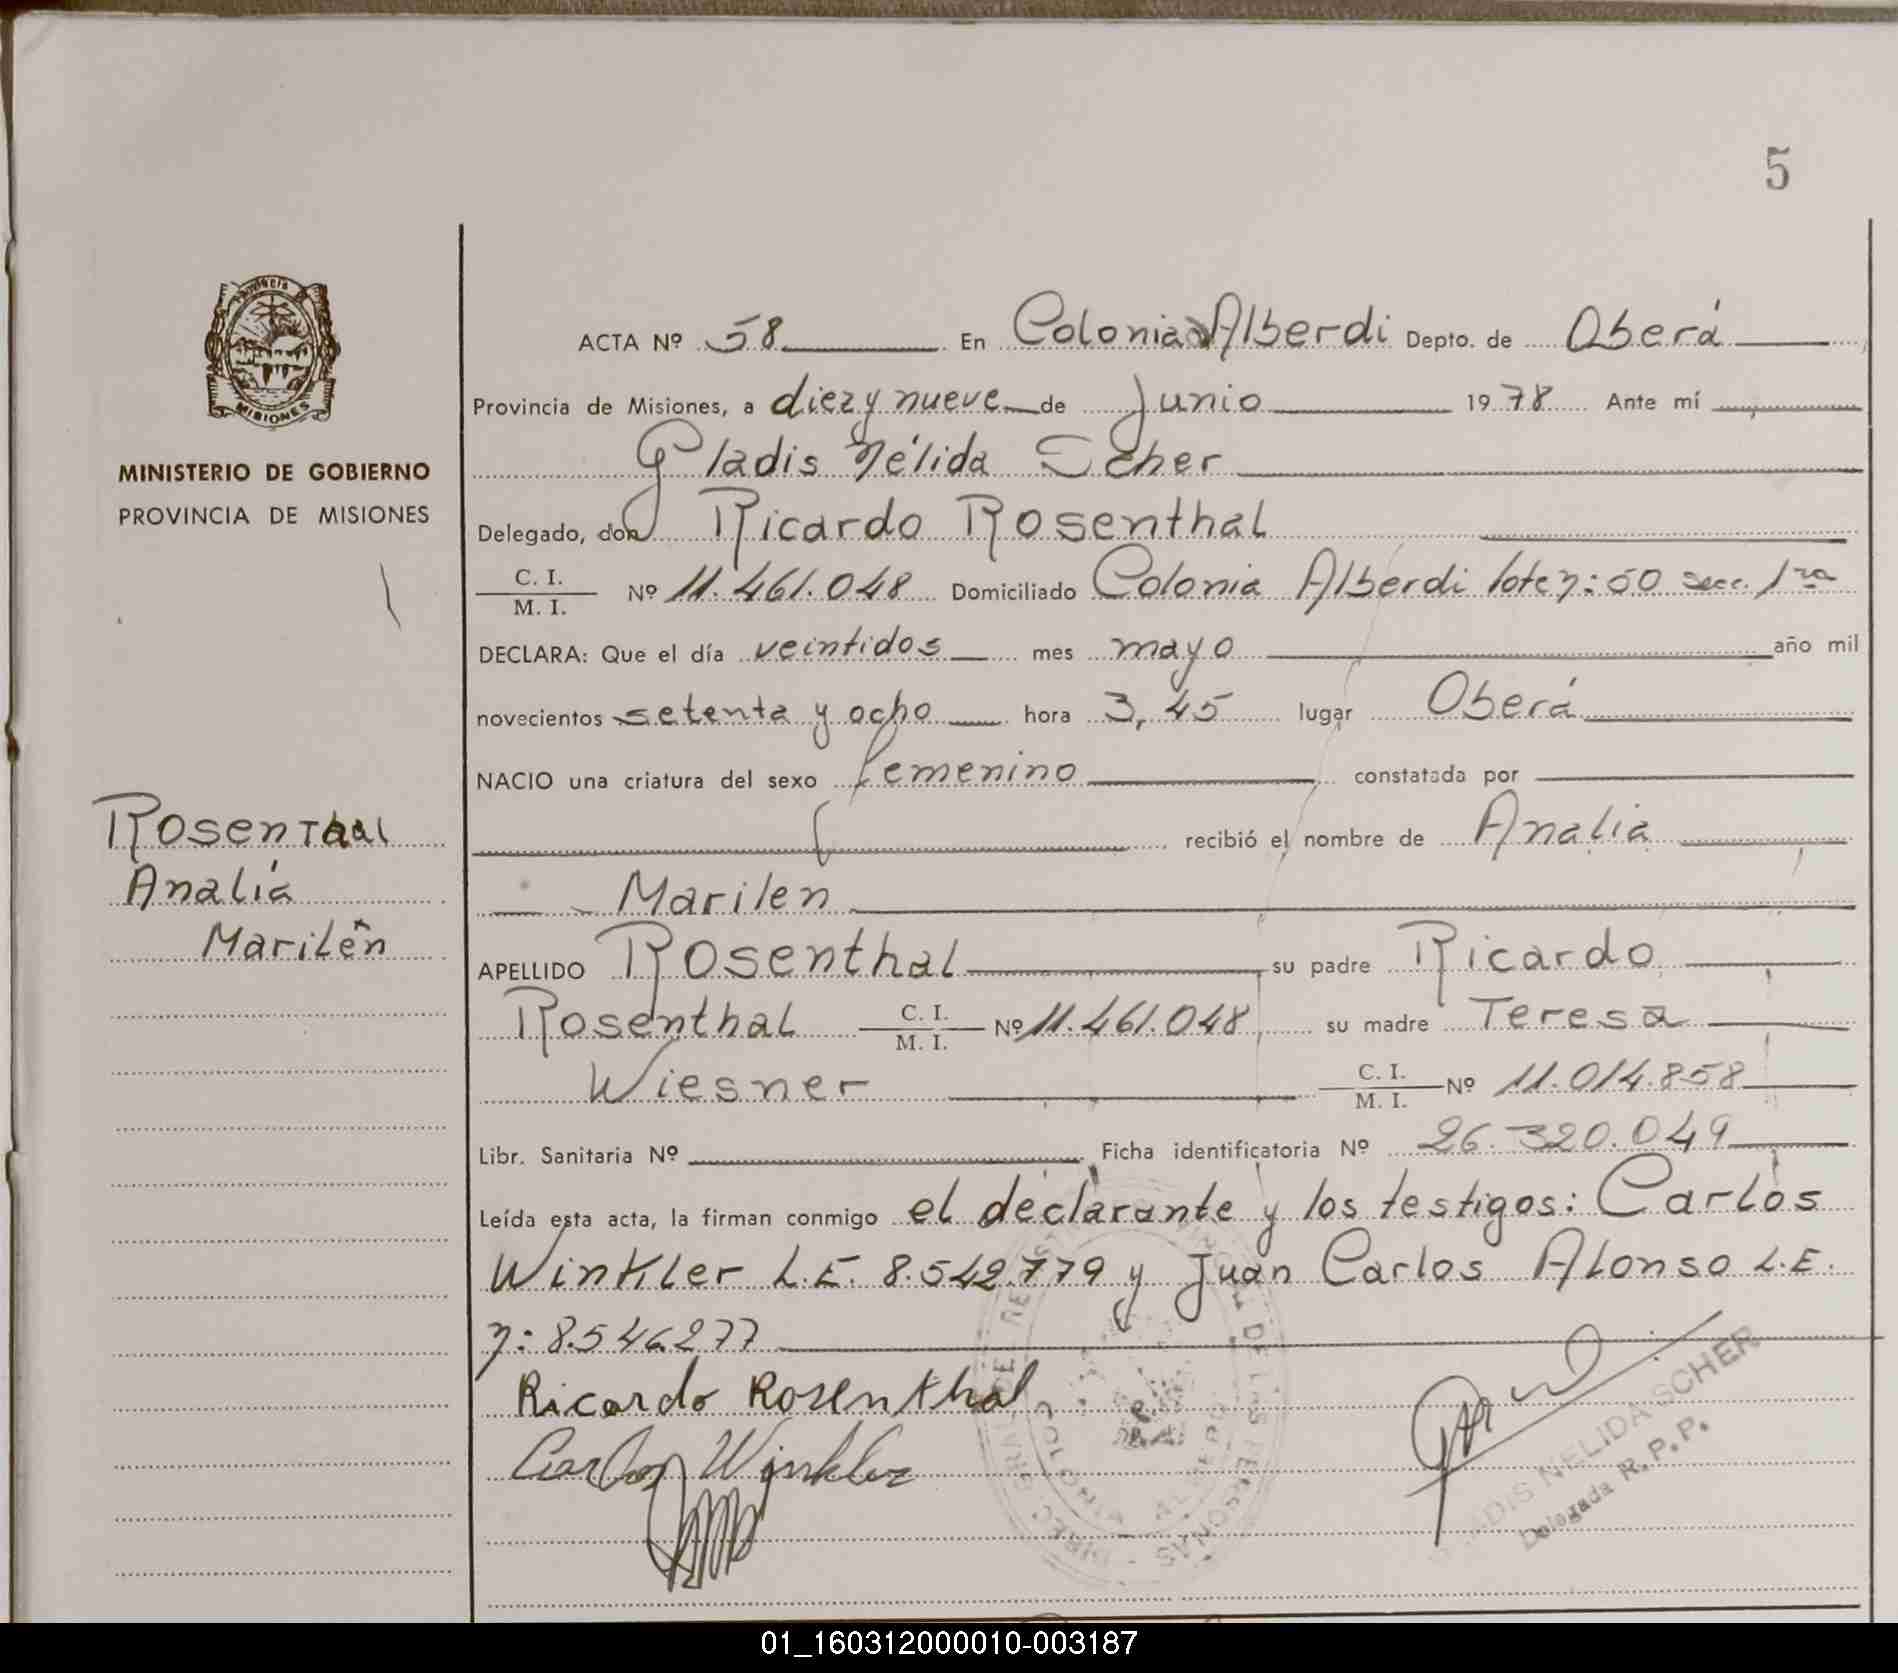 5
Provincia de
MISIONES
MINISTERIO DE GOBIERNO
PROVINCIA DE MISIONES
Rosenthal
Analía
Marilén
ACTA Nº 58 En Colonia Alberdi Depto. de Oberá
Provincia de Misiones, a diez y nueve de Junio 1978 Ante mí
Gladis Nélida Scher
Delegado, don Ricardo Rosenthal
C. I.
M. I. Nº 11.461.048 Domiciliado Colonia Alberdi lote n: 60 secc. 1ra
DECLARA: Que el día veintidos mes mayo año mil
novecientos setenta y ocho hora 3,45 lugar Oberá
NACIO una criatura del sexo femenino constatada por
recibió el nombre de Analia
Marilen
APELLIDO Rosenthal su padre Ricardo
Rosenthal C. I. M. I. Nº 11.461.048 su madre Teresa
Wiesner C. I. M. I. Nº 11.014.858
Libr. Sanitaria Nº Ficha identificatoria Nº 26.320.049
Leída esta acta, la firman conmigo el declarante y los testigos: Carlos
Winkler L.E. 8.542.779 y Juan Carlos Alonso L.E.
n: 8.546.277
Ricardo Rosenthal
Carlos Winkler
GLADIS NELIDA SCHER
Delegada R. P. P.
01_160312000010-003187